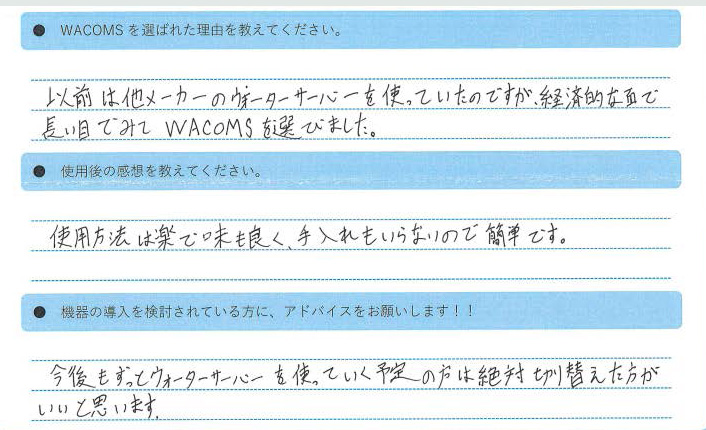 ● WACOMSを選ばれた理由を教えてください。
以前は他メーカーのウォーターサーバーを使っていたのですが、経済的な面で
長い目でみて WACOMSを選びました。
● 使用後の感想を教えてください。
使用方法は楽で味も良く、手入れもいらないので簡単です。
● 機器の導入を検討されている方に、アドバイスをお願いします！！
今後もずっとウォーターサーバーを使っていく予定の方は絶対切り替えた方が
いいと思います。